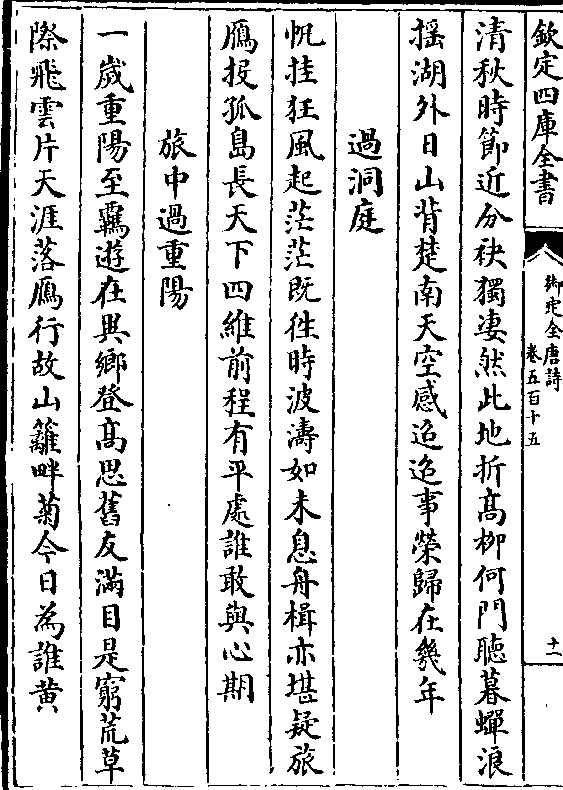 欽定四庫全書
御定全唐詩
卷五百十五
十一
清秋時節近分袂獨凄然此地折髙柳何門聽暮蟬浪
揺湖外日山背楚南天空感迢迢事榮歸在幾年
過洞庭
帆挂狂風起茫茫既徃時波濤如未息舟楫亦堪疑旅
鴈投孤島長天下四維前程有平處誰敢與心期
旅中過重陽
一歲重陽至羈遊在異鄉登髙思舊友滿目是窮荒草
際飛雲片天涯落鴈行故山籬畔菊今日為誰黄